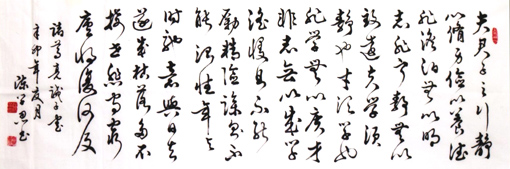 夫君子之行静
以脩身儉以養德
非澹泊無以明
志非寧静無以
致遠夫學須
静也才須學也
非學無以廣才
非志無以成學
慢則不能
勵精險躁則不
能治性年與
時馳意與日去
遂成枯落多不
接世悲守窮
廬將復何及
諸葛亮誡子書
辛卯年夏月
思書